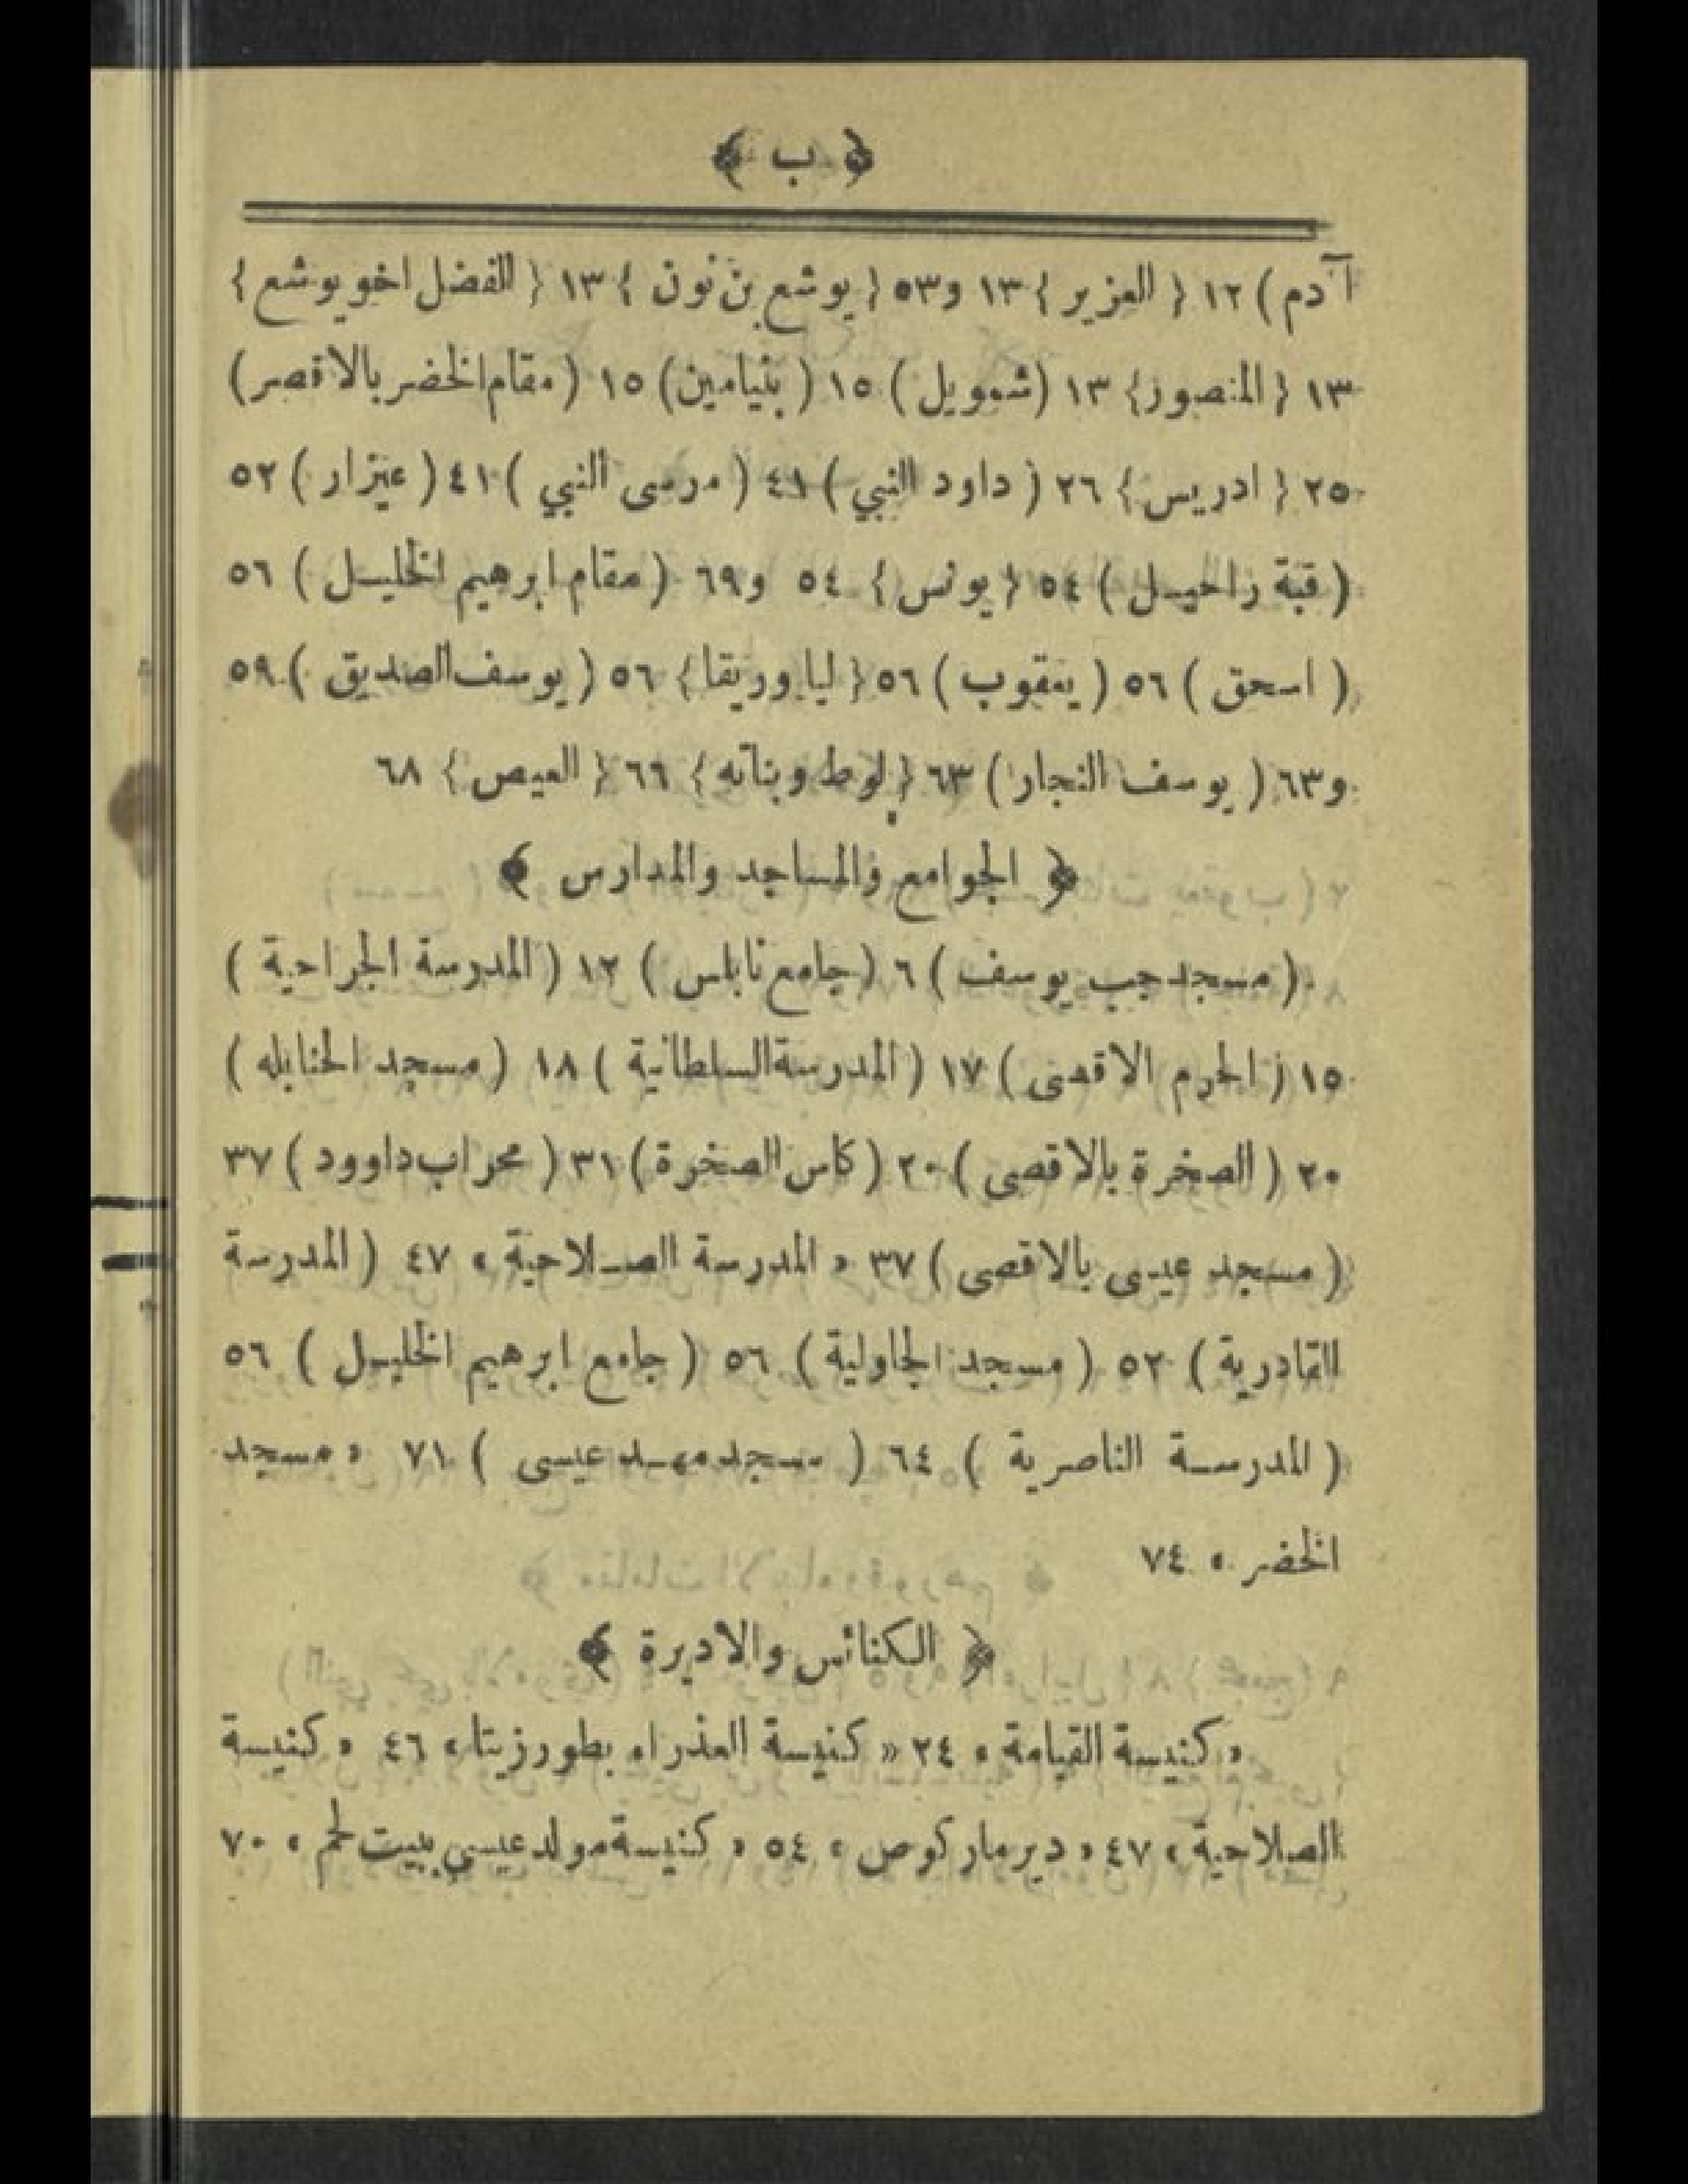 ﴿ ب ﴾
آدم ) ١٢ { العزير } ١٣ و٥٣ { يوشع بن نون } ١٣ { الفضل اخو يوشع }
١٣ { المنصور } ١٣ ( شمويل ) ١٥ ( بنيامين ) ١٥ ( مقام الخضر بالاقصر )
٢٥ { ادريس } ٢٦ ( داود النبي ) ٤١ ( مرسى النبي ) ٤١ ( عيزار ) ٥٢
( قبة راحيل ) ٥٤ { يونس } ٥٤ و٦٩ ( مقام ابرهيم الخليل ) ٥٦
( اسحق ) ٥٦ ( يعقوب ) ٥٦ { ليا وريقا } ٥٦ ( يوسف الصديق ) ٥٩
و٦٣ ( يوسف النجار ) ٦٣ { لوط وبناته } ٦٦ { العيص } ٦٨
﴿ الجوامع والمساجد والمدارس ﴾
( مسجد جب يوسف ) ٦ ( جامع نابلس ) ١٢ ( المدرسة الجراحية )
١٥ ( الحرم الاقصى ) ١٧ ( المدرسة السلطانية ) ١٨ ( مسجد الحنابله )
٢٠ ( الصخرة بالاقصى ) ٢٠ ( كاس الصخرة ) ٣١ ( محراب داوود ) ٣٧
( مسجد عيسى بالاقصى ) ٣٧ « المدرسة الصلاحية » ٤٧ ( المدرسة
القادرية ) ٥٢ ( مسجد الجاولية ) ٥٦ ( جامع ابرهيم الخليل ) ٥٦
( المدرسة الناصرية ) ٦٤ ( مسجد مهد عيسى ) ٧١ « مسجد
الخضر » ٧٤
﴿ الكنائس والاديرة ﴾
« كنيسة القيامة » ٢٤ « كنيسة العذراء بطورزيتا » ٤٦ « كنيسة
الصلاحية » ٤٧ « دير ماركوص » ٥٤ « كنيسة مولد عيسى ببيت لحم » ٧٠